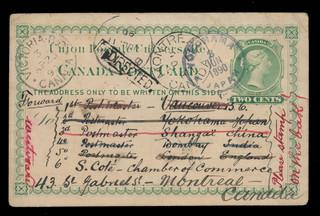 Union Postale Universelle
CANADA POST CARD
THE ADDRESS ONLY TO BE WRITTEN ON THIS SIDE
TWO CENTS
Forward
1st Postmaster Vancouver B.C.
2d Postmaster Yokohama Japan
3d Postmaster Shangai China
4 Postmaster Bombay India
5 Postmaster London England
6 S. Cole - Chamber of Commerce
43 St Gabriel St - Montreal
Canada
Please stamp
on the back
1890